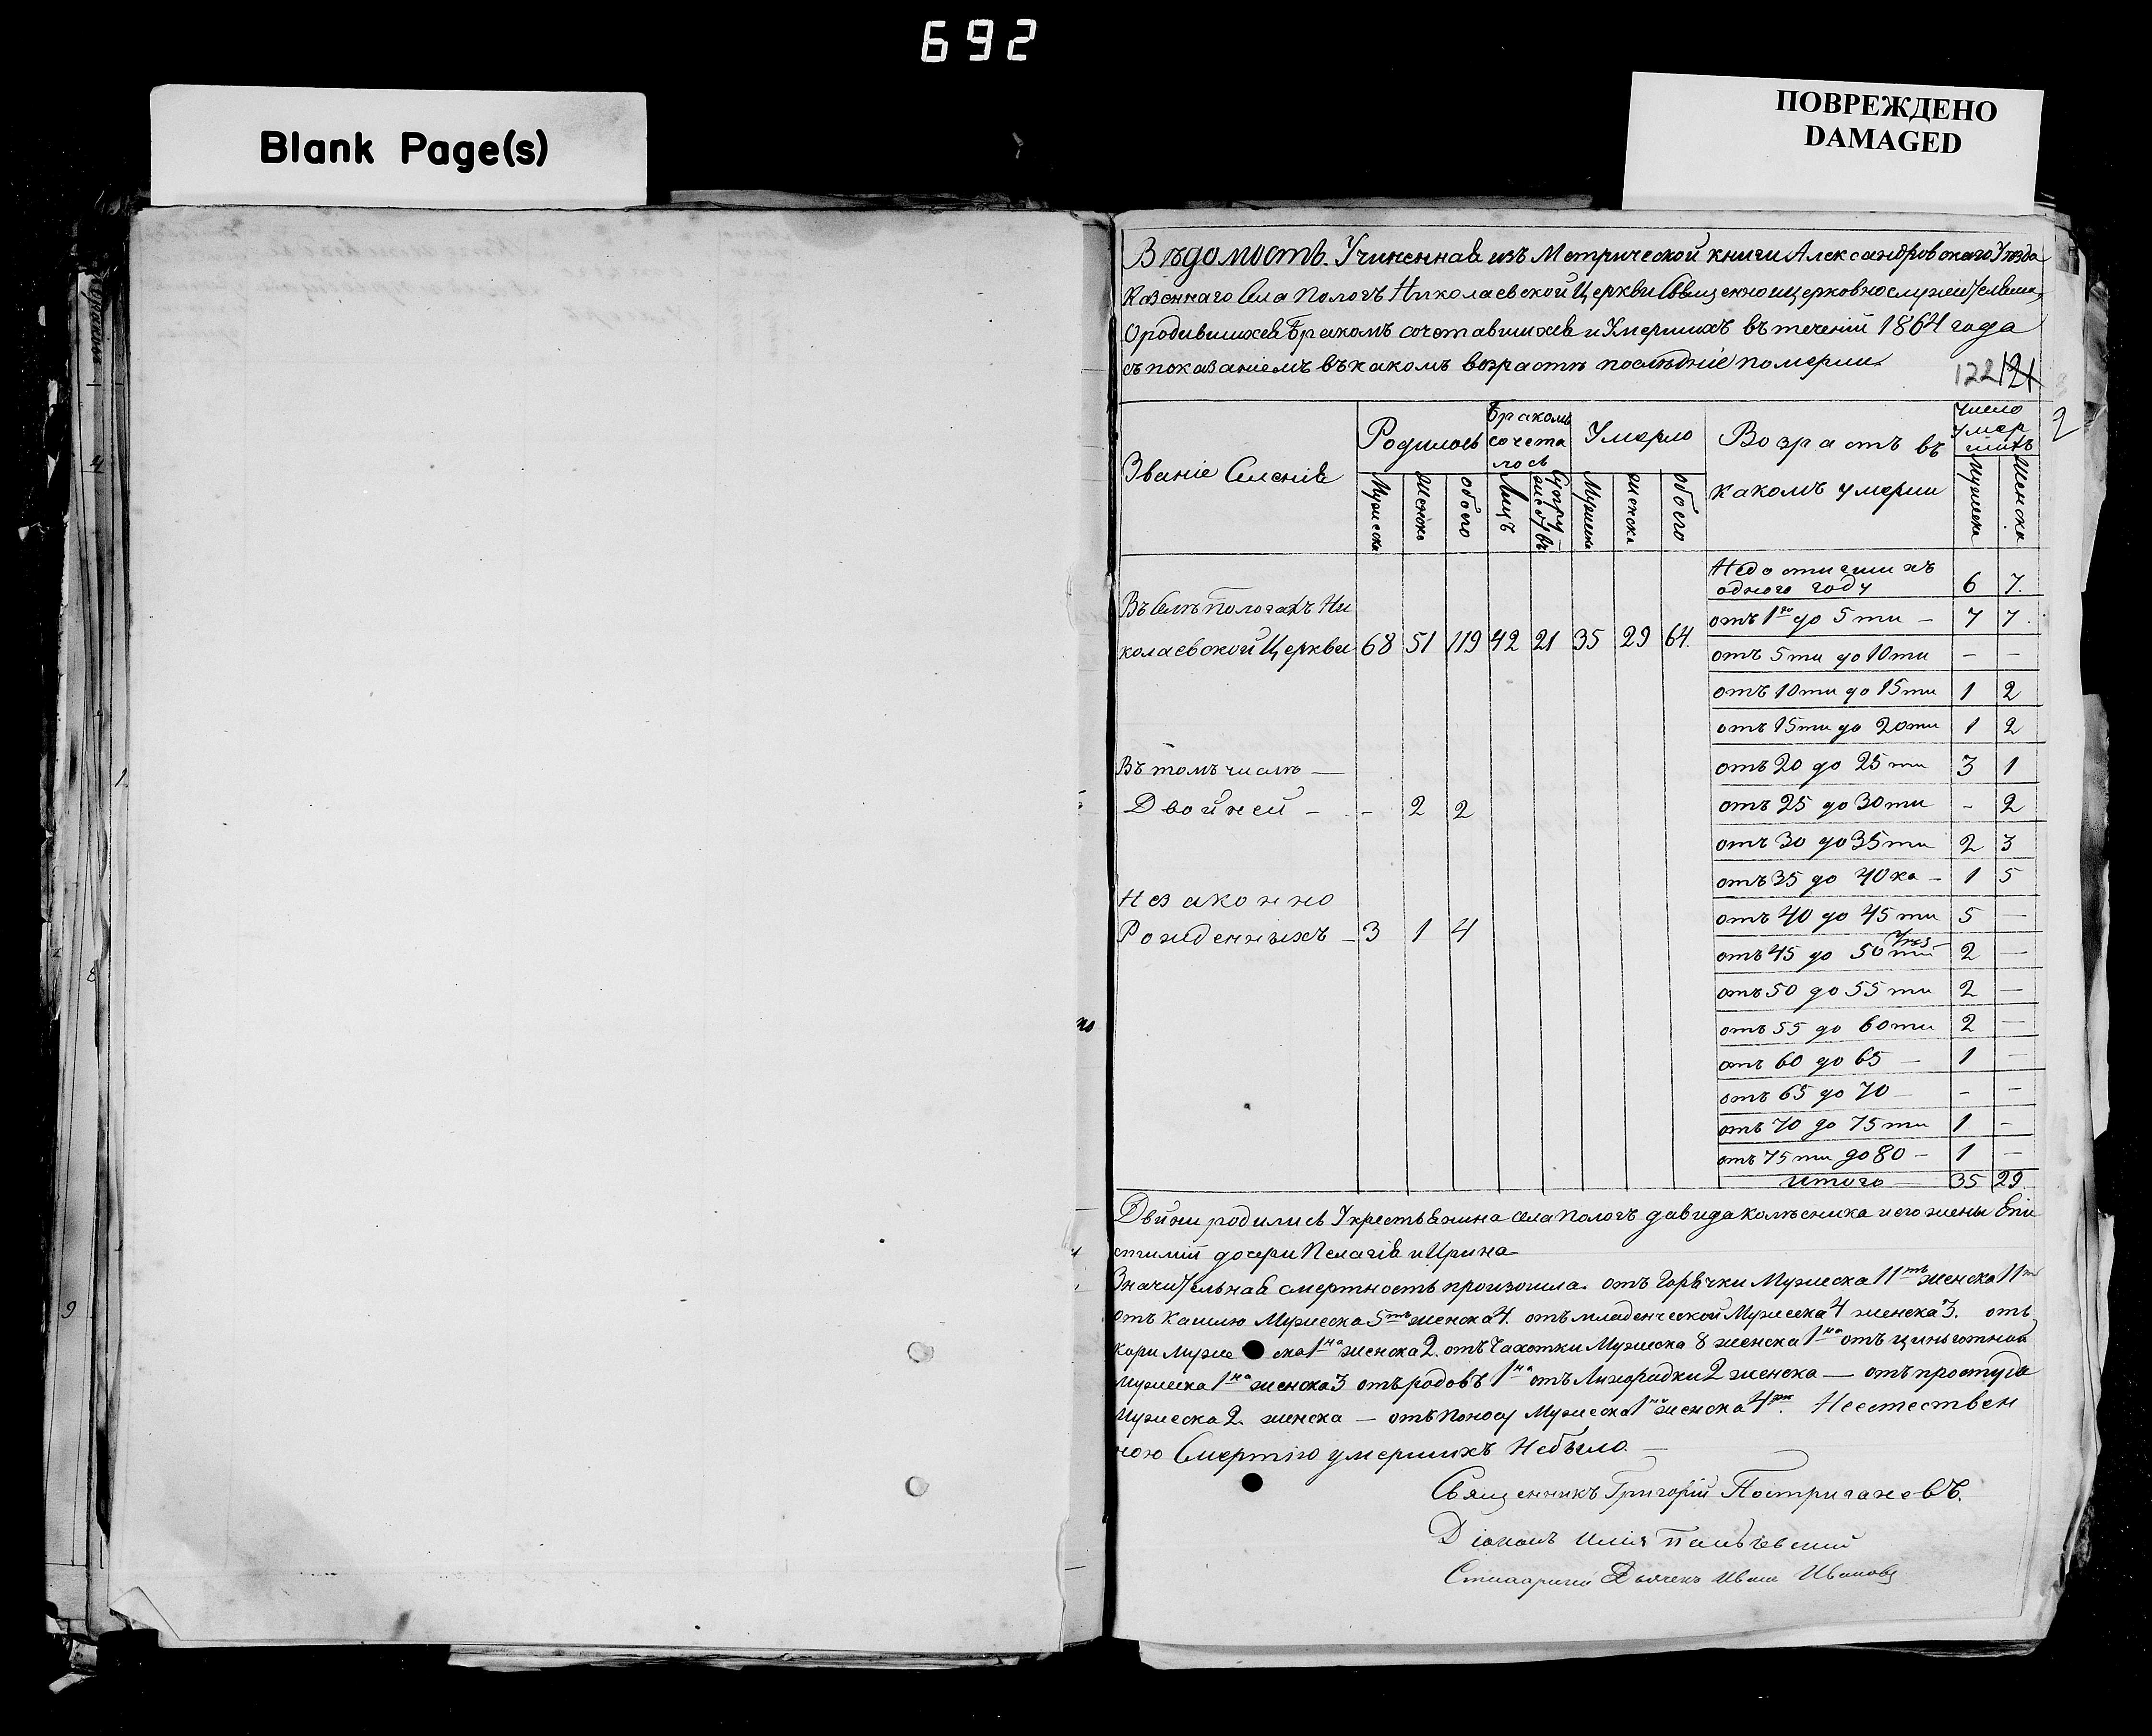 692
Blank Page(s)
ПОВРЕЖДЕНО
DAMAGED
Вѣдомость. Учиненная изъ Метрической книги Александровскаго Уѣзда
Казеннаго Села Пологъ Николаевской Церкви Священноицерковнослужительми,
Ородившихся Бракомъ сочетавшихся и Умершихъ въ теченіи 1864 года
съ показаніемъ въ какомъ возрастѣ послѣдніе померли.
122 121
2
Званіе Селенія
Родилось
Бракомъ сочета лось
Умерло
Возрастъ въ какомъ умерли
Число умер шихъ
Мужеска Женска обоего Лицъ Супру жествъ Мужеска Женска обоего Мужеска Женска
Въ Селѣ Пологахъ Ни
колаевской Церкви 68 51 119 42 21 35 29 64.
Въ томъ числѣ —
Двойней - - 2 2
Незаконно
Рожденныхъ - 3 1 4
Недостигшихъ
одного году 6 7.
отъ 1го до 5ти - 7 7.
отъ 5ти до 10ти - -
отъ 10ти до 15ти 1 2
отъ 15ти до 20ти 1 2
отъ 20 до 25ти 3 1
отъ 25 до 30ти - 2
отъ 30 до 35ти 2 3
отъ 35 до 40ка - 1 5
отъ 40 до 45ти 5 —
отъ 45 до 50ти 2 —
отъ 50 до 55ти 2 —
отъ 55 до 60ти 2 —
отъ 60 до 65 - 1 —
отъ 65 до 70 - - —
отъ 70 до 75ти 1 -
отъ 75ти до 80 - 1 —
Итого — 35 29.
Двйни родились Укрестьянина села Пологъ давида Колѣсника и его жены Епи
стиміи дочери Пелагія и Ирина
Значительная смертность произошла. отъ Горячки Мужеска 11ть женска 11ть
отъ Кашлю Мужеска 5ть женска 4. отъ младенческой Мужеска 4 женска 3. отъ
кори муже ска 1на женска 2. отъ Чахотки Мужеска 8 женска 1на отъ цынготной
мужеска 1на женска 3 отъ родовъ 1на отъ Лихорадки 2 женска — отъ простуды
Мужеска 2. женска — отъ Поносу Мужеска 1на женска 4ре. Неестествен
ною Смертію умершихъ Небыло. —
Священникъ Григорій Постригачевъ.
Діаконъ Илія
Дьячекъ Иванъ Ивановъ